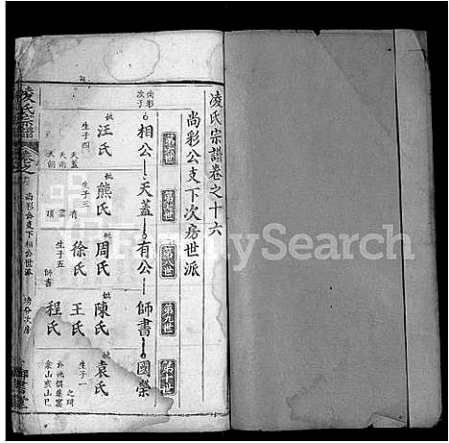 凌氏宗譜卷之十六
尚彩公支下次房世派
第六世
第七世
第八世
第九世
第十世
尚彩次子
相公
天蓋
有公
師書
國榮
妣汪氏
生子四
天蓋
妣熊氏
生子三
有
妣周氏
徐氏
生子五
師書
妣陳氏
王氏
程氏
妣袁氏
生子一
之琦
凌氏宗譜
尚彩公支下相公世派
FamilySearch